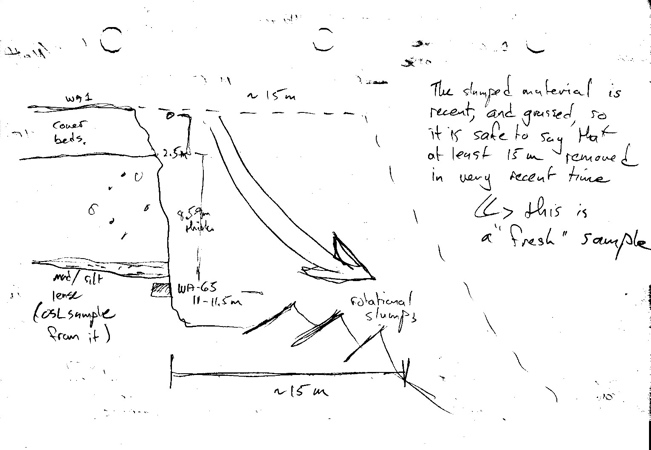 ~ 15 m
The slumped material is
recent, and grassed, so
it is safe to say that
at least 15 m removed
in very recent time
<<> this is
a "fresh" sample
wg1
cover
beds.
0
2.5m
8.59m
thick
mud/silt
lense
(OSL sample
from it)
WA-65
11-11.5m
rotational
slumps
~15 m